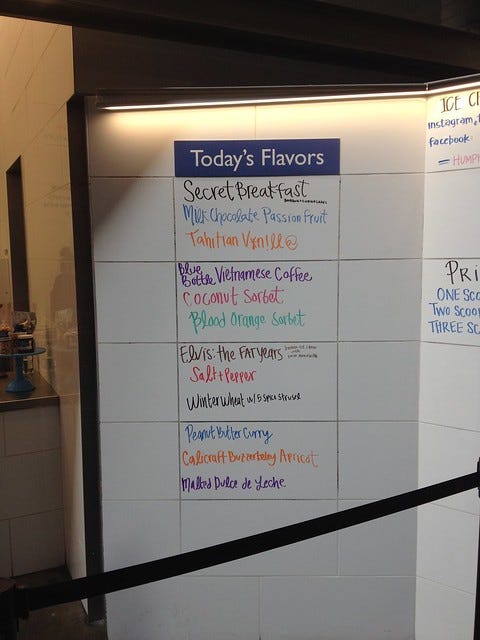 Today's Flavors
Secret Breakfast
Milk Chocolate Passion fruit
Tahitian Vanilla
Blue Bottle Vietnamese Coffee
Coconut Sorbet
Blood Orange Sorbet
Elvis: the FAT years
Salt + Pepper
Winter Wheat w/ 5 spice strusel
Peanut Butter Curry
Calicraft Buzzerkeley Apricot
Malted Dulce de Leche
ICE C
instagram
facebook:
HUMPH
PRI
ONE SCO
TWO SCOOP
THREE SC